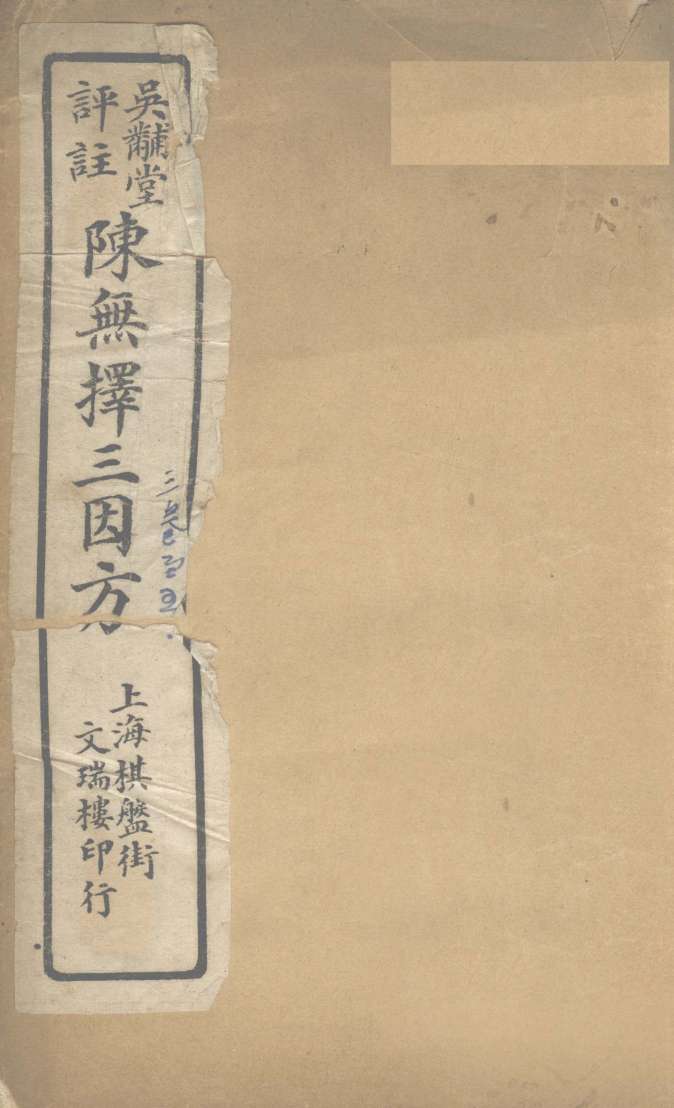 吳黼堂
評註
陳無擇三因方
三卷
上海棋盤街
文瑞樓印行